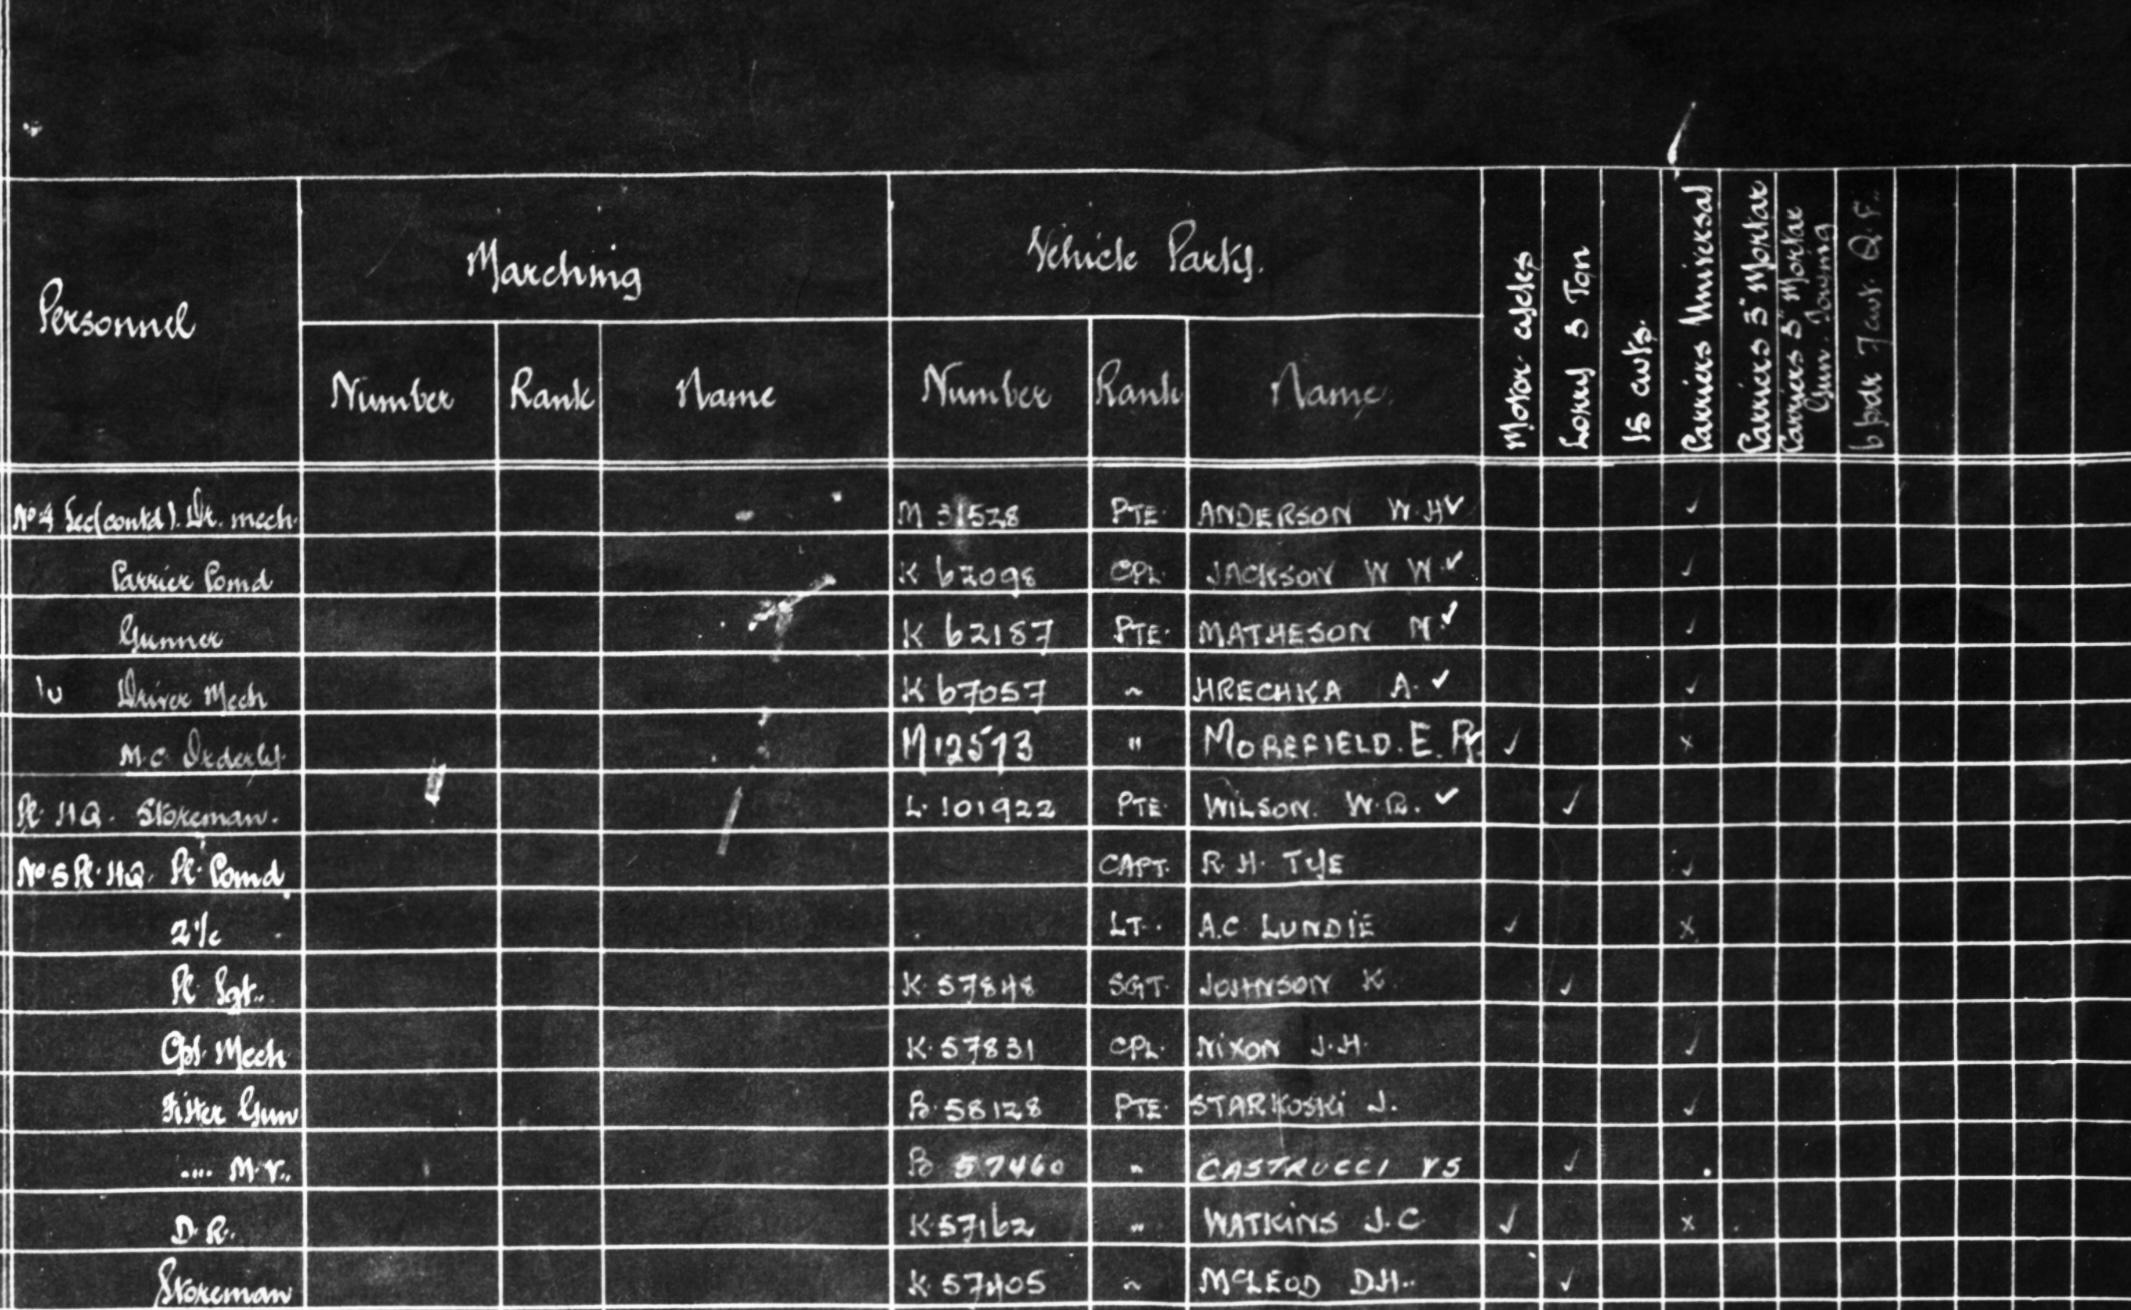 Personnel Marching Vehicle Party.
Number Rank Name Number Rank Name
Motor cycles
Lorry 3 Ton
15 cwts.
Carriers Universal
Carriers 3" Mortar
Carriers 3" Mortar
Gun. Towing
6 pdr 7 cwt. Q.F.
No 4 Sec (contd). Dr. mech. M 31528 PTE. ANDERSON W.H ✓ ✓
Carrier Comd K 62098 CPL. JACKSON W W. ✓ ✓
Gunner K 62187 PTE. MATHESON N. ✓ ✓
Driver Mech K 67057 " HRECHKA A. ✓ ✓
M.C. Orderly. M12573 " MOREFIELD. E. ✓ x
Pl. HQ. Storeman. L. 101922 PTE WILSON. W.R. ✓ ✓
No. 5 Pl. HQ. Pl. Comd. CAPT. R. H. TYE ✓
2 i/c LT. A.C. LUNDIE ✓ x
Pl. Sgt. K. 57848 SGT. JOHNSON K. ✓
Cpl. Mech K. 57831 CPL. NIXON J.H. ✓
Fitter Gun B. 58128 PTE. STARKOSKI J. ✓
" M.V. B 57460 " CASTRUCCI VS ✓
D.R. K 57162 " WATKINS J.C ✓ x
Storeman K 57405 " MCLEOD D.H. ✓